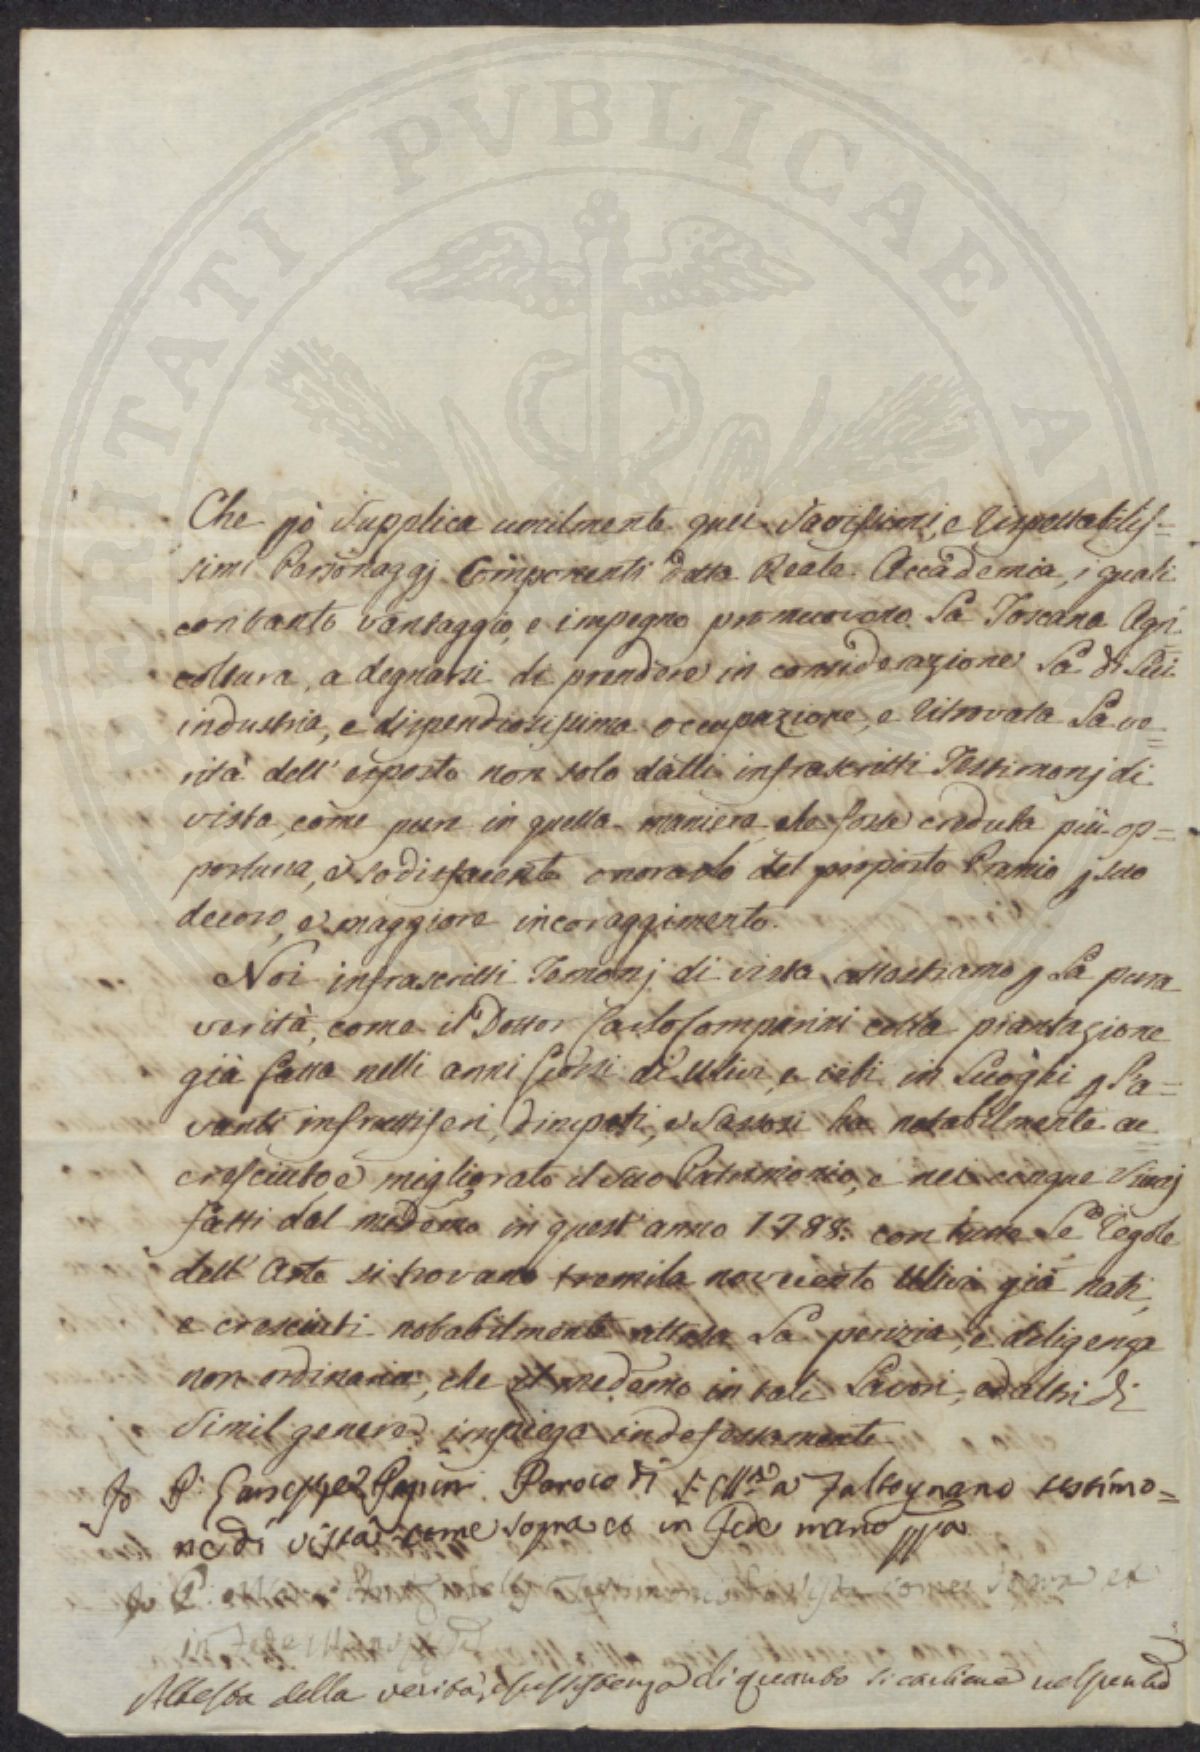 PROSPERITATI PUBLICAE AU
Che pò Supplica umilmente quei Savissimi, e Rispettabilis=
simi Personaggj Componenti detta Reale Accademia, i quali
con tanto vantaggio, e impegno promuovono La Toscana Agri
coltura, a degnarsi di prendere in considerazione La di Lui
industria, e dispendiosissima occupazione, e Ritrovata La ve=
rità dell' esposto non solo dalli infrascritti Testimonj di
vista, come pure in quella maniera che fosse creduta più op=
portuna, e sodisfacente onorarlo del proposto Premio p suo
decoro, e maggiore incoraggimento.
Noi infrascritti Temonj di vista attestiamo p La pura
verità, come il Dottor Carlo Comparini colla piantazione
già fatta nelli anni scorsi di Ulivi, e viti in Luoghi p L'a=
vanti infruttiferi, dirupati, e Sassosi ha notabilmente ac=
cresciuto e migliorato il suo Patrimonio, e nei cinque Vivaj
fatti dal medemo in quest' anno 1788: con tutte Le Regole
dell' Arte si trovano tremila novecento Ulivi già nati,
e cresciuti notabilmente attesa La perizia, e diligenza
non ordinaria, che il medemo in tali Lavori, ed altri di
simil genere impiega indefessamente.
Io P. Giuseppe Papini Paroco di a Faltognano testimo=
ne di vista come sopra et in Fede mano ppa
Io P. come sopra et
in Fede
Attesta della verità, e sussistenza di quanto si contiene nel